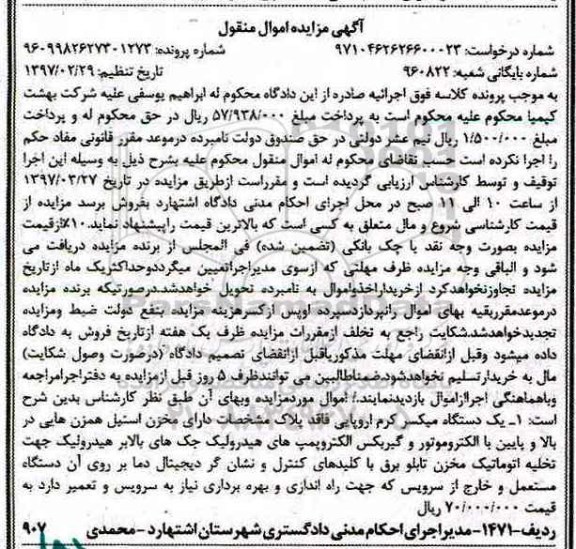 آگهی مزایده اموال منقول
شماره درخواست: ۹۷۱۰۴۶۲۶۲۶۶۰۰۰۲۳ شماره پرونده: ۹۶۰۹۹۸۲۶۲۷۳۰۱۲۷۳
شماره بایگانی شعبه: ۹۶۰۸۲۲ تاریخ تنظیم: ۱۳۹۷/۰۲/۲۹
به موجب پرونده کلاسه فوق اجرائیه صادره از این دادگاه محکوم له ابراهیم یوسفی علیه شرکت بهشت
کیمیا محکوم علیه محکوم است به پرداخت مبلغ ۵۷/۹۳۸/۰۰۰ ریال در حق محکوم له و پرداخت
مبلغ ۱/۵۰۰/۰۰۰ ریال نیم عشر دولتی در حق صندوق دولت نامبرده درموعد مقرر قانونی مفاد حکم
را اجرا نکرده است حسب تقاضای محکوم له اموال منقول محکوم علیه بشرح ذیل به وسیله این اجرا
توقیف و توسط کارشناس ارزیابی گردیده است و مقرراست ازطریق مزایده در تاریخ ۱۳۹۷/۰۳/۲۷
از ساعت ۱۰ الی ۱۱ صبح در محل اجرای احکام مدنی دادگاه اشتهارد بفروش برسد مزایده از
قیمت کارشناسی شروع و مال متعلق به کسی است که بالاترین قیمت راپیشنهاد نماید.۱۰٪ازقیمت
مزایده بصورت وجه نقد یا چک بانکی (تضمین شده) فی المجلس از برنده مزایده دریافت می
شود و الباقی وجه مزایده ظرف مهلتی که ازسوی مدیراجراتعیین میگرددوحداکثریک ماه ازتاریخ
مزایده تجاوزنخواهدکرد ازخریداراخذواموال به نامبرده تحویل خواهدشد.درصورتیکه برنده مزایده
درموعدمقرربقیه بهای اموال رانپردازدسپرده اوپس ازکسرهزینه مزایده بنفع دولت ضبط ومزایده
تجدیدخواهدشد.شکایت راجع به تخلف ازمقررات مزایده ظرف یک هفته ازتاریخ فروش به دادگاه
داده میشود وقبل ازانقضای مهلت مذکوریاقبل ازانقضای تصمیم دادگاه (درصورت وصول شکایت)
مال به خریدارتسلیم نخواهدشود.ضمناطالبین می توانندظرف ۵ روز قبل ازمزایده به دفتراجرامراجعه
وباهماهنگی اجراازاموال بازدیدنمایند./ اموال موردمزایده وبهای آن طبق نظر کارشناس بدین شرح
است: ۱ـ یک دستگاه میکسر کرم اروپایی فاقد پلاک مشخصات دارای مخزن استیل همزن هایی در
بالا و پایین با الکتروموتور و گیربکس الکتروپمپ های هیدرولیک جک های بالابر هیدرولیک جهت
تخلیه اتوماتیک مخزن تابلو برق با کلیدهای کنترل و نشان گر دیجیتال دما بر روی آن دستگاه
مستعمل و خارج از سرویس که جهت راه اندازی و بهره برداری نیاز به سرویس و تعمیر دارد به
قیمت ۷۰/۰۰۰/۰۰۰ ریال
ردیف-۱۴۷۱- مدیراجرای احکام مدنی دادگستری شهرستان اشتهارد - محمدی ۹۰۷